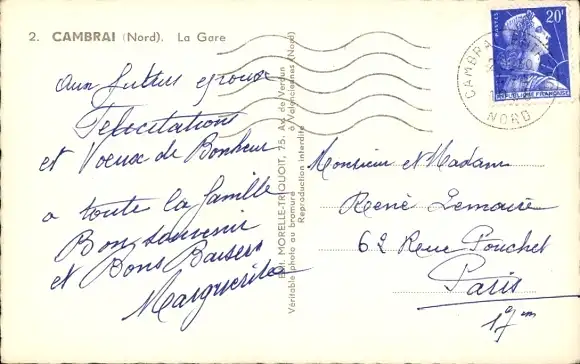 2. CAMBRAI (Nord). La Gare
Aux futurs epoux
Félicitations
et Voeux de Bonheur
a toute la famille
Bon souvenir
et Bons Baisers
Marguerite
Edit. MORELLE-TRIQUOIT, 75, Av. de Verdun
à Valenciennes (Nord)
Véritable photo au bromure
Reproduction interdite
POSTES
20F
REPUBLIQUE FRANÇAISE
CAMBRAI
NORD
Monsieur et Madame
René Lemaire
62 Rue Pouchet
Paris
17em